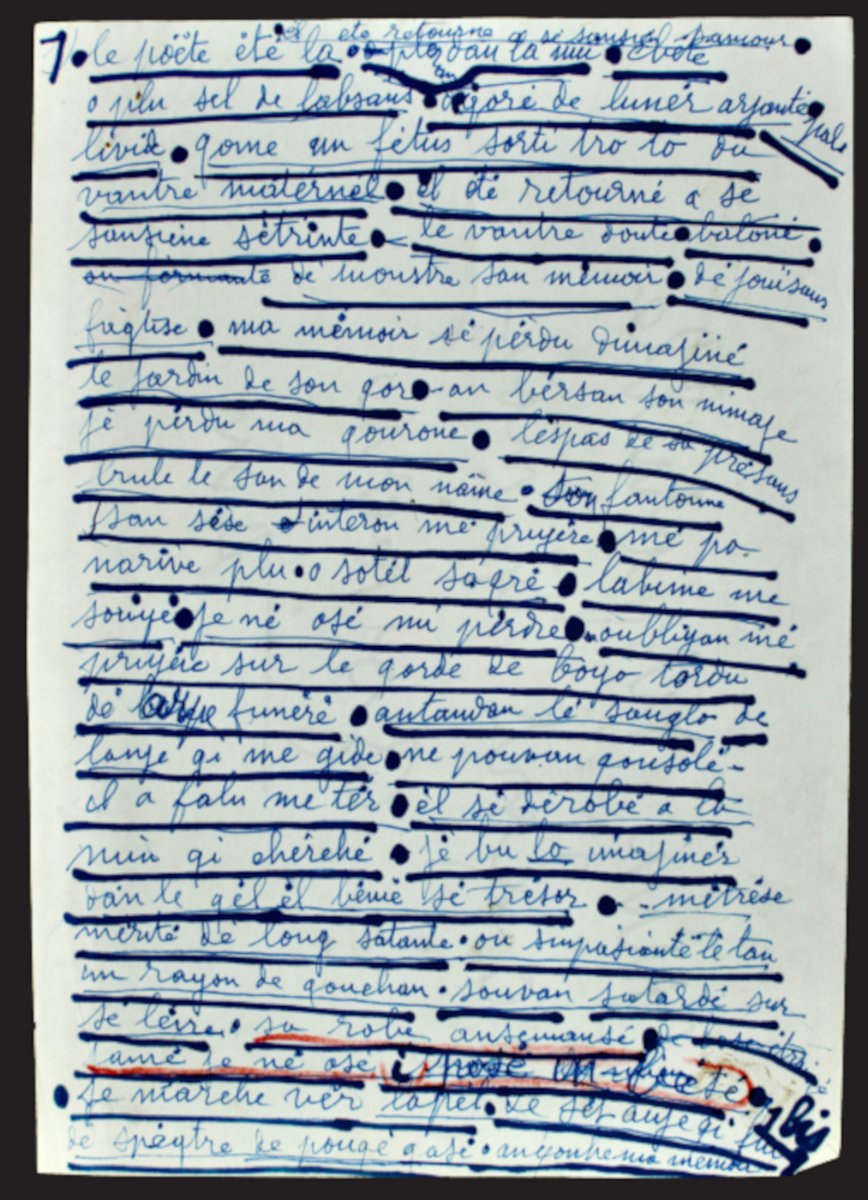 il ete retourne a se sansien pamour
1 • le pöète été la • dan la nui • chote
o plu sel de labsans • dgoré de lunér arjanté • pale
livid • qome un fêtus sorti tro to du
vantre maternèl • él été retourné a se
sansiene sétrinte • le vantre doute • baloné •
ou formanté dé monstre san mémoir • dé jouisans
féqlise • ma mémoir sé pérdu dimajiné
le jardin de son qor • an bérsan son nimaje
jé pérdu ma qourone • léspas de sa présans
brule le san de mon name • son fantome
san sèse d'intéron mé pruyère • mé pa-
narive plu • o sotél saqré • labime me
souye • je né osé mi pérdre • oubliyan mé
pruyéré sur le qorde de boyo tordu
dé larpe funéré • antandan lé sanglo de
lanje qi me gide • ne pouvan qonsolé-
il a falu me tér • èl sé dérobé a la
min qi chérché • jé bu lo imajinér
dan le gél èl bémé sé trésor • métrése
mérité dé long satante • ou impasianté le tan
un rayon de qouchan • souvan satardé sur
sé lèvre • sa robe ansemansé • de
jamé je né osé i posé un bèsé •
• je marché vèr lapél de sét anje qi fui 1 bis
dé spéqtre de poupé qasé •